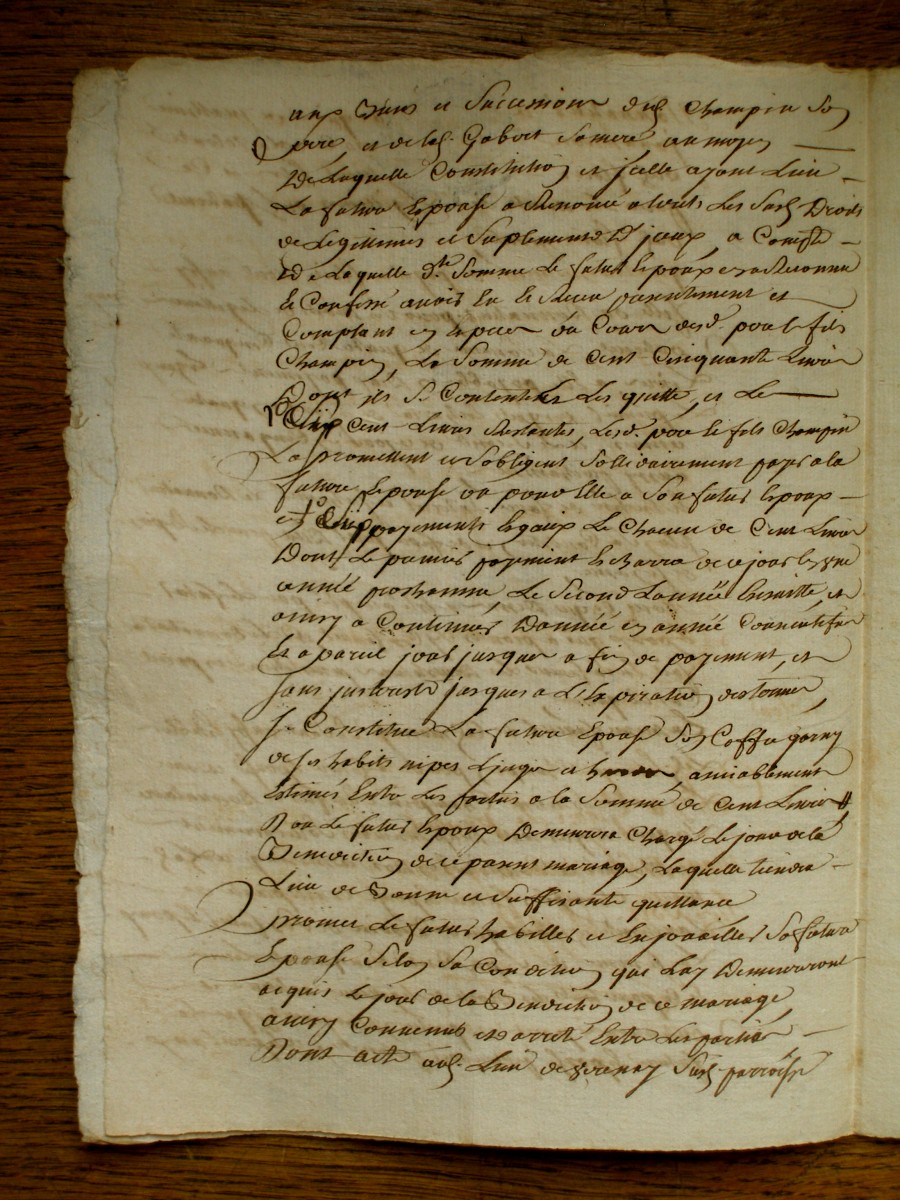 aux biens et successions dud. Champin son
pere, et de lad. Gabert sa mere, au moyen
de laquelle constitution et jcelle ayant lieu
la future epouse a renoncé a touts les susd. droits
de legittimes et suplements d'jceux, a compte
de laquelle dte. somme le futur epoux en a reconnu
et confessé avoir eu et receu presentement et
comptant en especes du cours desd. pere et fils
Champin, la somme de cent cinquante livres
dont il se contente les quitte, et le
cent livres restantes, lesd. pere et fils Champin
la promettent et s'obligent sollidairement payer a la
future epouse ou pour elle a son futur epoux
en payements egaux et chacun de cent livres
dont le premier payement echerra de ce jour en une
année prochaine, le second l'année ensuitte, et
ainsy a continuer d'année en année consecutifve
et a pareil jour jusques a fin de payement, et
sans jnterest jusques a l'expiration des termes,
se constitue la future epouse son coffre garny
de ses habits nipes linges et amiablement
estimés entre les parties a la somme de cent livres
dont le futur epoux demeurera chargé le jour de la
benediction de ce present mariage, laquelle tiendra
lieu de bonne et suffisante quittance
promet le futur habiller et enjoailler sa future
epouse selon sa condition qui luy demeureront
acquis le jour de la benediction de ce mariage,
ainsy convenus et arreté entre les parties
dont acte aud. lieu de susd. parroisse